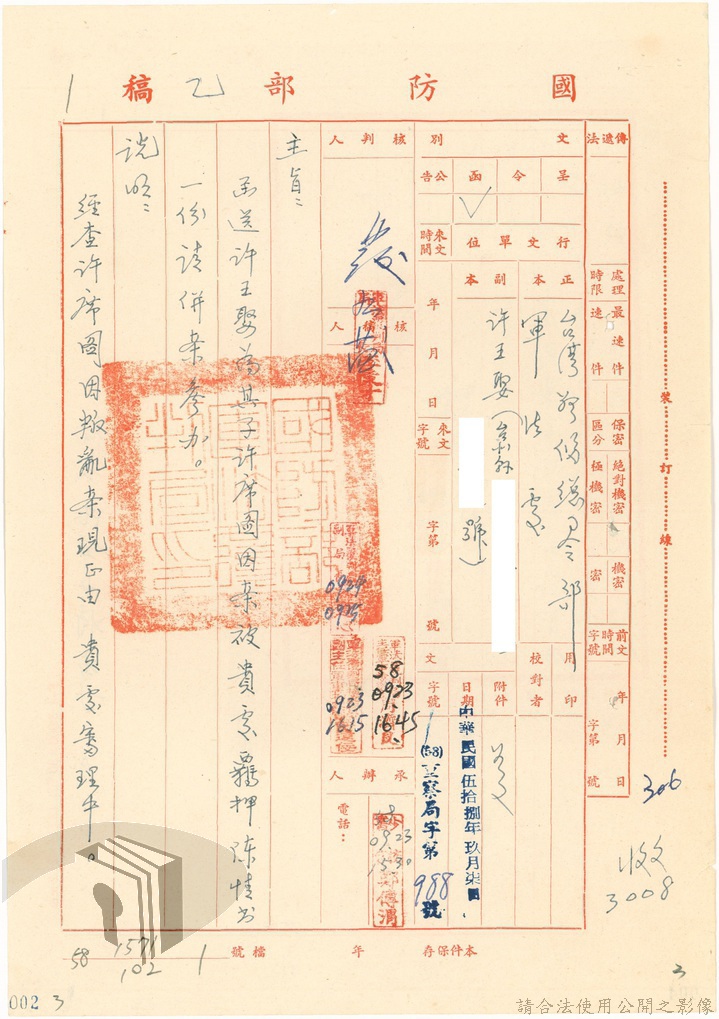 國防部乙稿
傳遞法
處理時限
最速件
速件
保密區分
絕對機密
極機密
機密
密
前文時間字號
年月日
字第號
文別
呈
令
函
公告
行文單位
來文時間
正本
副本
台灣警備總司令部
軍法處
許王娶
號
年月日
來文字號
字第號
用印
校對者
附件
文
日期
字號
中華民國伍拾捌年玖月
(58)
察局字第988號
核判人
發
核稿人
0924
0915
0923
1615
58
0923
1645
承辦人
電話：
0923
1530
主旨：
函送許王娶為其子許席圖因案被貴處羈押陳情書
一份請併案參辦。
說明：
經查許席圖因叛亂案現正由貴處審理中。
裝訂線
306
收文
3008
本件保存年
檔號
58
1571
102
1
002
3
請合法使用公開之影像